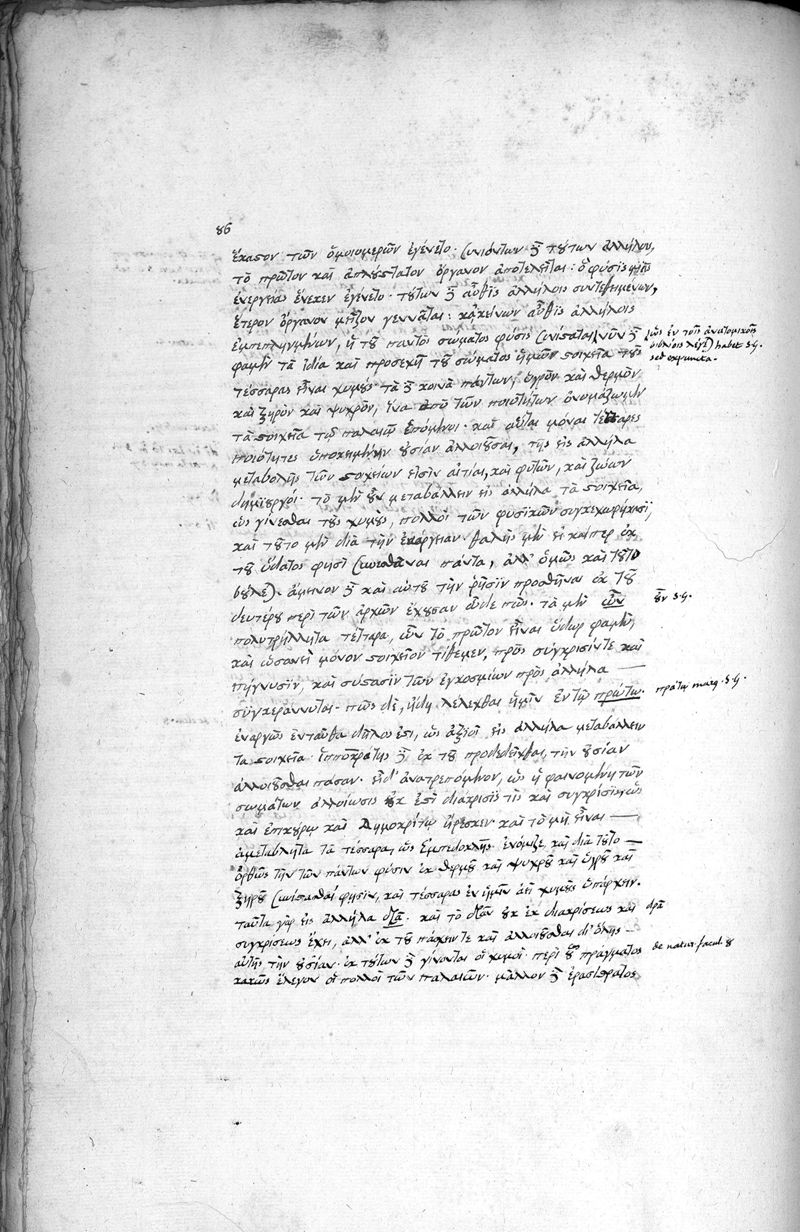 86
ἕκαστον τῶν ὁμοιομερῶν ἐγένετο. συνιόντων δὲ τούτων ἀλλήλοις,
τὸ πρῶτον καὶ ἁπλούστατον ὄργανον ἀποτελεῖται: ὃ φύσις μιᾶς
ἐνεργείας ἕνεκεν ἐγένετο. τούτων δὲ αὖθις ἀλλήλοις συντεθειμένων,
ἕτερον ὄργανον μεῖζον γεννᾶται: κἀκείνων αὖθις ἀλλήλοις
ἐμπεπλεγμένων, ἡ τοῦ παντὸς σώματος φύσις συνίσταται. νῦν δὲ
ὡς ἐν τοῖς ἀνατομικοῖς
βιβλίοις λέγει) habet S.G.
sed expuncta.
φαμὲν τὰ ἴδια καὶ προσεχῆ τοῦ σώματος ἡμῶν στοιχεῖα τοὺς
τέσσαρας εἶναι χυμοὺς τὰ δὲ κοινὰ πάντων, ὑγρὸν καὶ θερμὸν
καὶ ξηρὸν καὶ ψυχρὸν, ἵνα ἀπὸ τῶν ποιοτήτων ὀνομάζωμεν
τὰ στοιχεῖα τῷ παλαιῷ ἑπόμενοι. καὶ αὗται μόναι τέσσαρες
ποιότητες ὑποκειμένην οὐσίαν ἀλλοιοῦσαι, τῆς εἰς ἄλληλα
μεταβολῆς τῶν στοιχείων εἰσὶν αἰτίαι, καὶ φυτῶν, καὶ ζώων
δημιουργοί. τὸ μὲν οὖν μεταβάλλειν εἰς ἄλληλα τὰ στοιχεῖα,
ὡς γίνεσθαι τοὺς χυμοὺς, πολλοὶ τῶν φυσικῶν συγκεχωρήκασι,
καὶ τοῦτο μὲν διὰ τὴν ἐνάργειαν θαλῆς μὲν εἰ καίπερ ἐκ
τοῦ ὕδατος φησὶ συνιστάναι πάντα, ἀλλ' ὅμως καὶ τοῦτο
βούλεται. ἄμεινον δὲ καὶ αὐτοῦ τὴν ῥῆσιν προσθεῖναι ἐκ τοῦ
δευτέρου περὶ τῶν ἀρχῶν ἔχουσαν ὧδε πως. τὰ μὲν ὧν
οὖν S.G.
πολυθρύλλητα τέτταρα, ὧν τὸ πρῶτον εἶναι ὕδωρ φαμὲν,
καὶ ὡσανεὶ μόνον στοιχεῖον τίθεμεν, πρὸς σύγκρισίν τε καὶ
πήγνυσιν, καὶ σύστασιν τῶν ἐγκοσμίων πρὸς ἄλληλα
συγκεράννυται. πῶς δὲ, ἤδη λέλεκται ἡμῖν ἐν τῷ πρώτῳ.
πράτῳ marg. S.G.
ἐναργῶς ἐνταῦθα δῆλος ἐστὶ, ὡς ἀξιοῖ εἰς ἄλληλα μεταβάλλειν
τὰ στοιχεῖα. ἱπποκράτης δὲ ἐκ τοῦ προδεδεῖχθαι, τὴν οὐσίαν
ἀλλοιοῦσθαι πᾶσαν. εἶδ' ἀνατρεπόμενον, ὡς ἡ φαινομένη τῶν
σωμάτων ἀλλοίωσις οὐκ ἐστὶ διάκρισίς τις καὶ σύγκρισις, ὡς
καὶ ἐπικούρῳ καὶ Δημοκρίτῳ ἤρεσκεν. καὶ τὸ μὴ εἶναι
ἀμετάβλητα τὰ τέσσαρα, ὡς ἐμπεδοκλῆς ἐνόμιζε, καὶ διὰ τοῦτο
ὀρθῶς τὴν τῶν πάντων φύσιν ἐκ θερμοῦ καὶ ψυχροῦ καὶ ὑγροῦ καὶ
ξηροῦ συνίστασθαί φησιν, καὶ τέσσαρας ἐν ἡμῖν ἀεὶ χυμοὺς ὑπάρχειν.
ταῦτα γὰρ εἰς ἄλληλα δρᾷ. καὶ τὸ δρᾶν οὐκ ἐκ διακρίσεως καὶ
δρᾷ
συγκρίσεως ἔχει, ἀλλ' ἐκ τοῦ πάσχειν τε καὶ ἀλλοιοῦσθαι δι' ὅλης
αὐτῆς τὴν οὐσίαν. ἐκ τούτων δὲ γίνονται οἱ χυμοί. περὶ οὗ πράγματος
de natur. facul. 8
κακῶς ἔλεγον οἱ πολλοὶ τῶν παλαιῶν. μᾶλλον δὲ ἐρασίστρατος